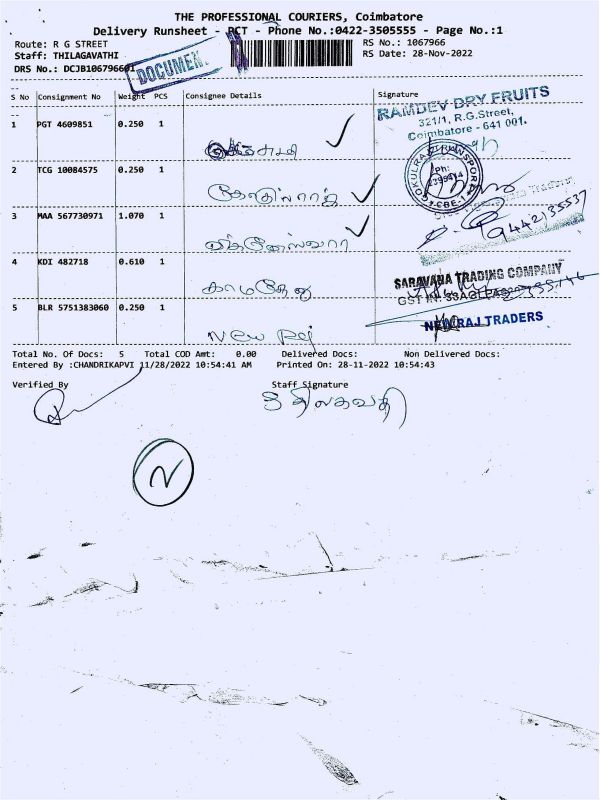 THE PROFESSIONAL COURIERS, Coimbatore
Delivery Runsheet - PCT - Phone No.:0422-3505555 - Page No.:1
Route: R G STREET
RS No.: 1067966
Staff: THILAGAVATHI
RS Date: 28-Nov-2022
DRS No.: DCJB106796601
DOCUMENT
S No Consignment No Weight PCS Consignee Details Signature
RAMDEV DRY FRUITS
321/1, R.G.Street,
Coimbatore - 641 001.
1 PGT 4609851 0.250 1
2 TCG 10084575 0.250 1
GOKULRAM TRANSPORT
Ph:
CBE
3 MAA 567730971 1.070 1
விக்னேஸ்வரா
9442135537
4 KDI 482718 0.610 1
காமதேனு
SARAVANA TRADING COMPANY
5 BLR 5751383060 0.250 1
New Raj
NEW RAJ TRADERS
Total No. Of Docs: 5 Total COD Amt: 0.00 Delivered Docs: Non Delivered Docs:
Entered By :CHANDRIKAPVI 11/28/2022 10:54:41 AM Printed On: 28-11-2022 10:54:43
Verified By Staff Signature
திலகவதி
2